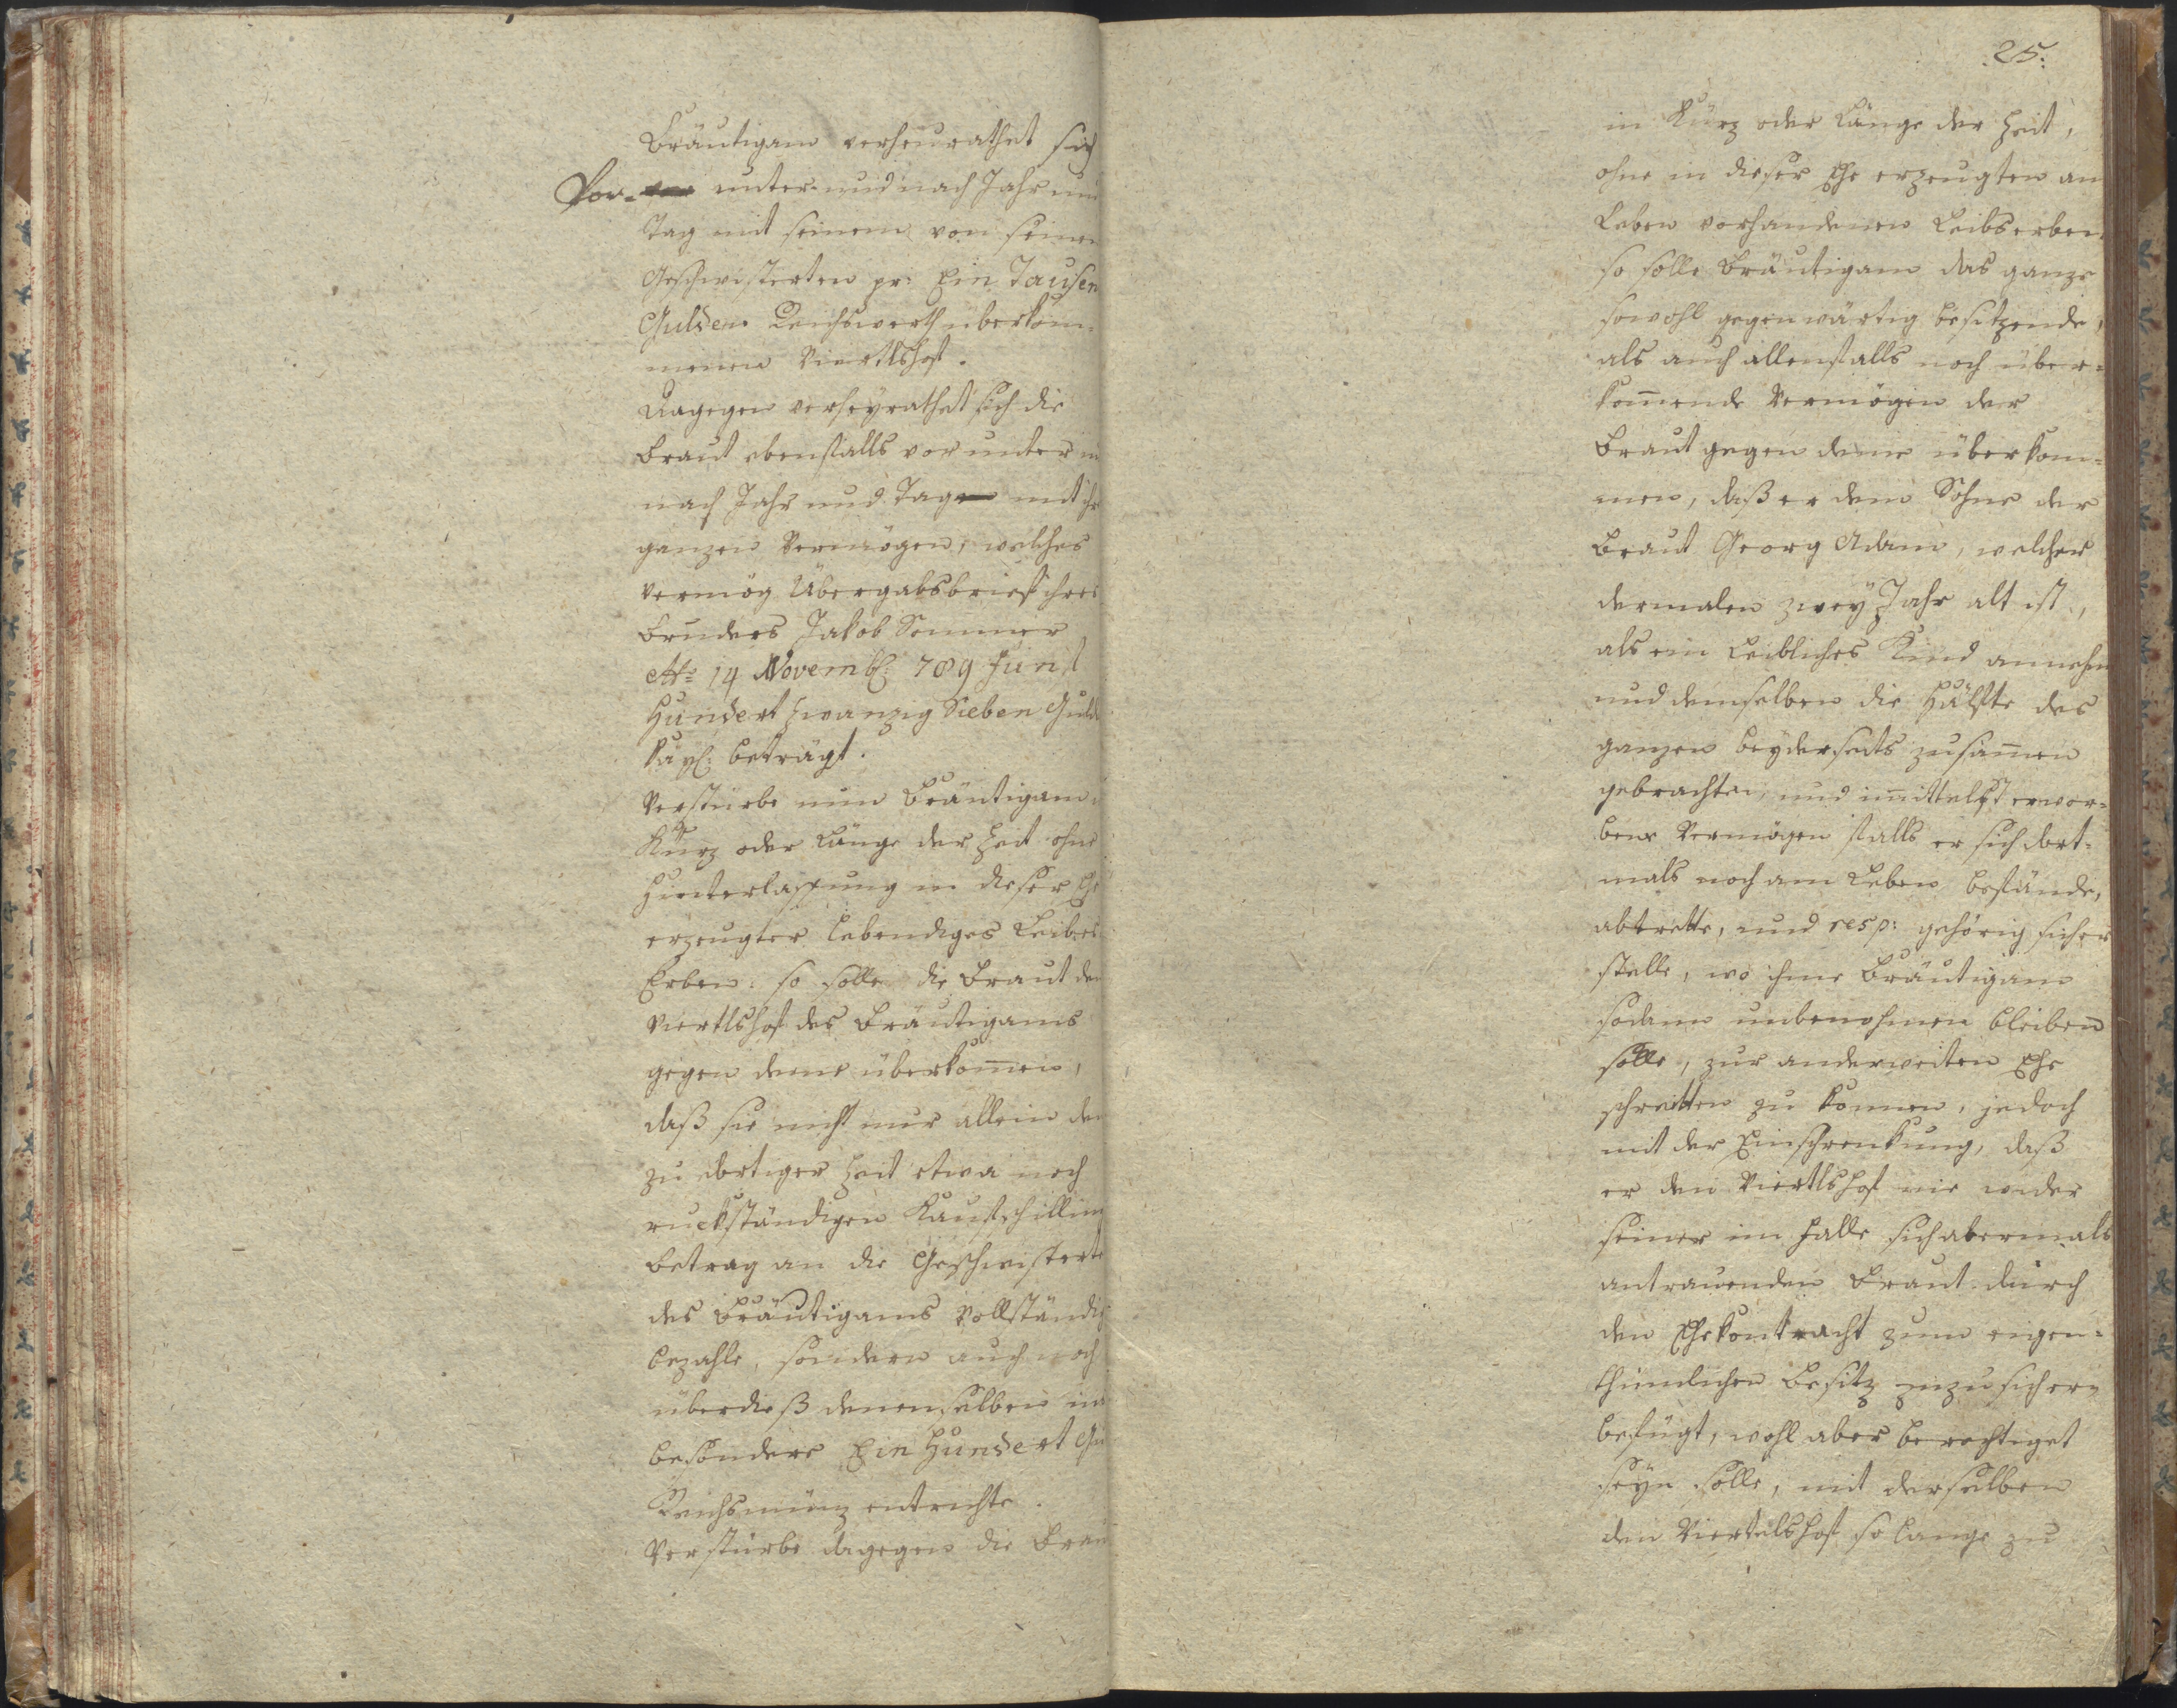 Bräutigam verheurathet sich
Vor- unter- und nach Jahr und
Tag mit seinem von seinen
Geschwisterten pr: Ein Tausen
Gulden Reichswerth überkom-
menen Viertlshof.
Dagegen verheyrathet sich die
Braut ebenfalls vor unter u
nach Jahr und Tag mit ihr
ganzen Vermögen, welches
vermög Übergabsbrief ihres
Bruders Jakob Sommer
14 Novemb: 789 Fünf
Hundert Zwanzig Sieben Guld
beträgt.
Verstürbe nun Bräutigam
Kürz oder Länge der Zeit ohne
Hinterlassung in dieser Ehe
erzeugter lebendiger Leibes
Erben: so solle die Braut den
Viertlshof des Bräutigams
gegen deme überkom̄en,
daß sie nicht nur allein den
zu dortiger Zeit etwa noch
ruckständigen Kaufschilling
betrag an die Geschwisterte
des Bräutigams vollständig
bezahle, sondern auch noch
überdieß denenselben ins
besondere Ein Hundert Gu
Reichsmünz entrichte.
Verstürbe dagegen die Brau
25.
in Kürz oder Länge der Zeit,
ohne in dieser Ehe erzeugten am
Leben vorhandenen Leibserben
so solle Bräutigam das ganze
sowohl gegenwärtig besitzende,
als auch allenfalls noch über-
kom̄ende Vermögen der
Braut gegen deme überkom-
men, daß er dem Sohne der
Braut Georg Adam, welcher
dermalen zwey Jahr alt ist,
als ein Leibliches Kind annehm
und demselben die Hälfte des
ganzen beyderseits zusam̄en
gebrachten, und im̄ittelst erwor-
bene Vermögen falls er sich dort-
mals noch am Leben befände,
abtrette, und resp: gehörig sicher
stelle, wo ihme Bräutigam
sodann unbenohmen bleiben
solle, zur anderweiten Ehe
schreitten zu können, jedoch
mit der Einschrenkung, daß
er den Viertlshof nie wider
seiner im Falle sich abermals
antrauenden Braut durch
den Ehekontracht zum eigen-
thümlichen Besitz zuzusichern
befugt, wohl aber berechtiget
seyn solle, mit derselben
den Viertelshof so lange zu